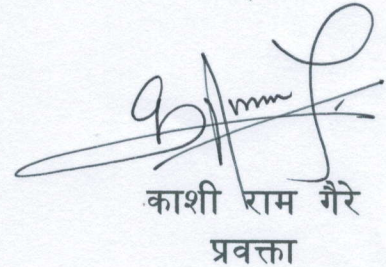 काशी राम गैरे
प्रवक्ता